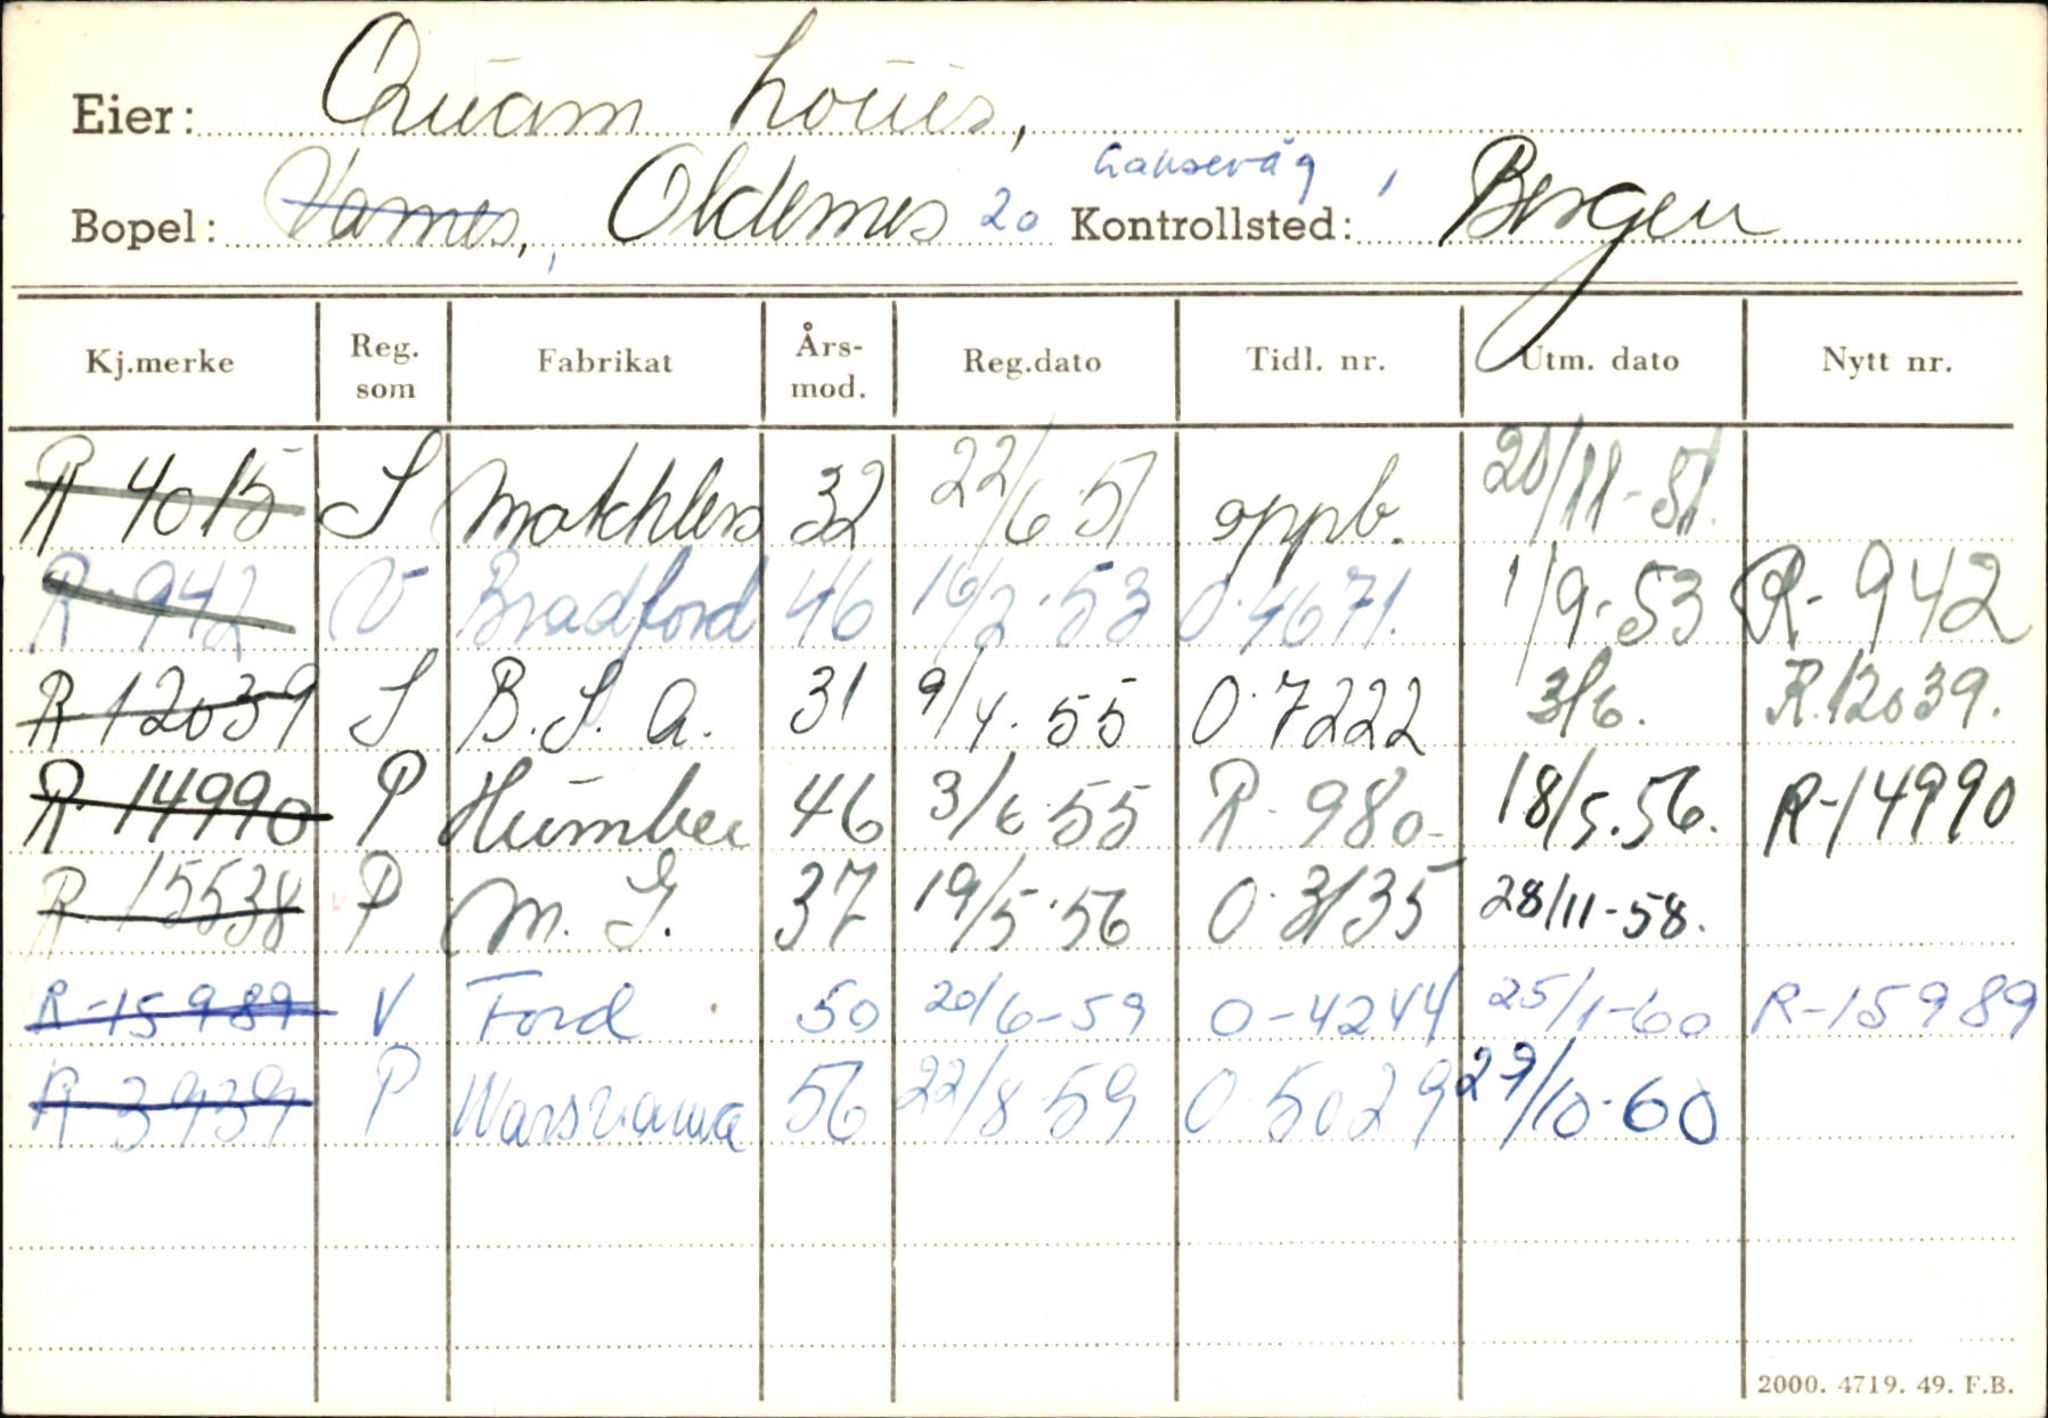 Eier: Quam Louis,
Laksevåg,
Bopel: Vamnes, Oldernes 20 Kontrollsted: Bergen
Kj.merke Reg. som Fabrikat Års- mod. Reg.dato Tidl. nr. Utm. dato Nytt nr.
R 4015 S Matchless 32 22/6.51 oppb. 20/11-51.
R-942 V Bradford 46 16/2.53 O.4671. 1/9-53 R-942
R 12039 S B.S.A. 31 9/4.55 O.7222 3/6. R.12039.
R.14990 P Humber 46 3/6.55 R-980- 18/5.56. R-14990
R.15538 P M.G. 37 19/5.56 O.3135 28/11-58.
R-15989 V Ford 50 20/6-59 O-4244 25/1-60 R-15989
R 3939 P Warszawa 56 22/8.59 O.5029 29/10.60
2000. 4719. 49. F.B.